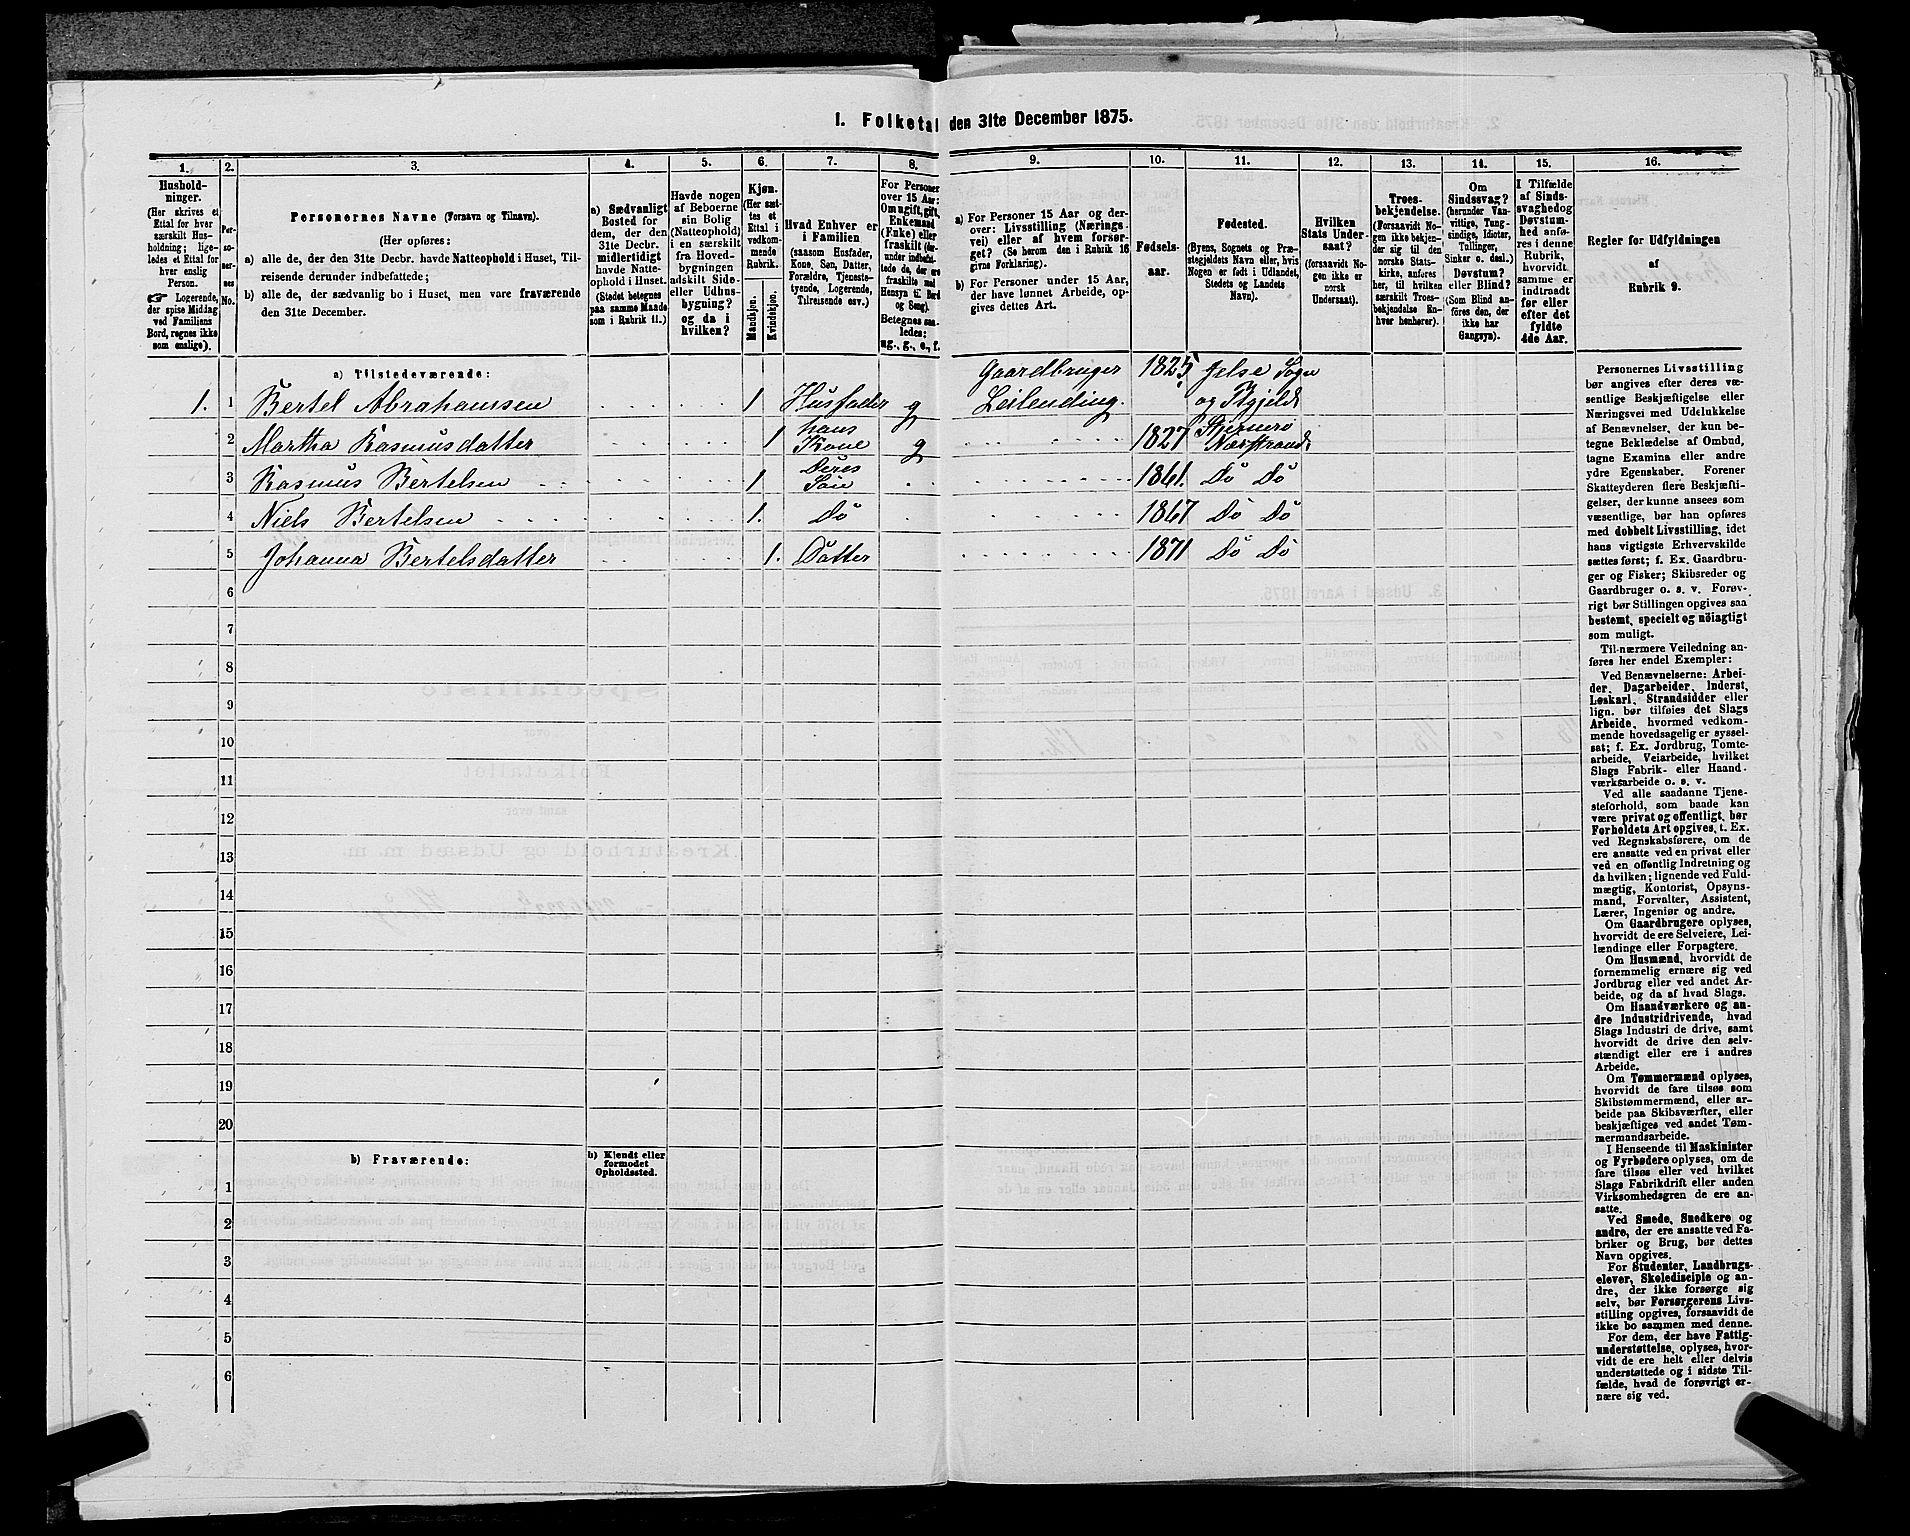 I. Folketal den 31te December 1875.
1.
Hushold-
ninger.
(Her skrives et
Ettal for hver
særskilt Hus-
holdning; lige-
ledes et Ettal for
hver enslig
Person.
☞ Logerende,
der spise Middag
ved Familiens
Bord, regnes ikke
som enslige).
2.
Per-
so-
ner-
nes
No.
3.
Personernes Navne (Fornavn og Tilnavn).
(Her opføres:
a) alle de, der den 31te Decbr. havde Natteophold i Huset, Til-
reisende derunder indbefattede;
b) alle de, der sædvanlig bo i Huset, men vare fraværende
den 31te December.
4.
a) Sædvanligt
Bosted for
dem, der den
31te Decbr.
midlertidigt
havde Natte-
ophold i Huset.
(Stedet betegnes
paa samme Maade
som i Rubrik 11.)
5.
Havde nogen
af Beboerne
sin Bolig
(Natteophold)
i en særskilt
fra Hoved-
bygningen
adskilt Side-
eller Udhus-
bygning?
og da i
hvilken?
6.
Kjøn.
(Her sæt-
tes et
Ettal i
vedkom-
mende
Rubrik.
Mandskjøn.
Kvindekjøn.
7.
Hvad Enhver er
i Familien
(saasom Husfader,
Kone, Søn, Datter,
Forældre, Tjeneste-
tyende, Logerende,
Tilreisende osv.)
8.
For Personer
over 15 Aar:
Om ugift, gift,
Enkemand
(Enke) eller
fraskilt (der-
under indbefat-
tede de, der ere
fraskilte med
Hensyn til Bord
og Seng).
Betegnes saa-
ledes:
ug., g., e., f.
9.
a) For Personer 15 Aar og der-
over: Livsstilling (Nærings-
vei) eller af hvem forsør-
get? (Se herom den i Rubrik 16
givne Forklaring).
b) For Personer under 15 Aar,
der have lønnet Arbeide, op-
gives dettes Art.
10.
Fødsels-
aar.
11.
Fødested.
(Byens, Sognets og Præ-
stegjeldets Navn eller, hvis
Nogen er født i Udlandet,
Stedets og Landets
Navn).
12.
Hvilken
Stats Under-
saat?
(forsaavidt No-
gen ikke er
norsk
Undersaat).
13.
Troes-
bekjendelse.
(Forsaavidt No-
gen ikke bekjen-
der sig til den
norske Stats-
kirke, anføres
her, til hvilken
særskilt Troes-
bekjendelse En-
hver henhører).
14.
Om
Sindssvag?
(herunder Van-
vittige, Tung-
sindige, Idioter,
Tullinger,
Sinker o. desl.)
Døvstum?
eller Blind?
(Som Blind an-
føres den, der
ikke har
Gangsyn).
15.
I Tilfælde
af Sinds-
svaghed og
Døvstum-
hed anfø-
res i denne
Rubrik,
hvorvidt
samme er
indtraadt
før eller
efter det
fyldte
4de Aar.
16.
Regler for Udfyldningen
af
Rubrik 9.
a) Tilstedeværende:
1. 1 Bertel Abrahamsen 1 Husfader g Gaardbruger Leilending. 1825 Jelse Sogn og Pgjeld
2 Martha Rasmusdatter 1 hans Kone g 1827 Stjernerø Nærstrand
3 Rasmus Bertelsen 1 Deres Søn 1861. Do Do
4 Niels Bertelsen 1. Do 1867 Do Do
5 Johanna Bertelsdatter 1. Datter 1871 Do Do
6
7
8
9
10
11
12
13
14
15
16
17
18
19
20
b) Fraværende:
b) Kjendt eller
formodet
Opholdssted.
1
2
3
4
5
6
Personernes Livsstilling
bør angives efter deres væ-
sentlige Beskjæftigelse eller
Næringsvei med Udelukkelse
af Benævnelser, der kun be-
tegne Beklædelse af Ombud,
tagne Examina eller andre
ydre Egenskaber. Forener
Skatteyderen flere Beskjæfti-
gelser, der kunne ansees som
væsentlige, bør han opføres
med dobbelt Livsstilling, idet
hans vigtigste Erhvervskilde
sættes først; f. Ex. Gaardbru-
ger og Fisker; Skibsreder og
Gaardbruger o. s. v. Forøv-
rigt bør Stillingen opgives saa
bestemt, specielt og nöiagtigt
som muligt.
Til nærmere Veiledning an-
føres her endel Exempler:
Ved Benævnelserne: Arbei-
der, Dagarbeider, Inderst,
Løskarl, Strandsidder eller
lign. bør tilføies det Slags
Arbeide, hvormed vedkom-
mende hovedsagelig er syssel-
sat; f. Ex. Jordbrug, Tomte-
arbeide, Veiarbeide, hvilket
Slags Fabrik- eller Haand-
værksarbeide o. s. v.
Ved alle saadanne Tjene-
steforhold, som baade kan
være privat og offentligt, bør
Forholdets Art opgives, t. Ex.
ved Regnskabsførere, om de
ere ansatte ved en privat eller
ved en offentlig Indretning og
da hvilken; lignende ved Fuld-
mægtig, Kontorist, Opsyns-
mand, Forvalter, Assistent,
Lærer, Ingeniør og andre.
Om Gaardbrugere oplyses,
hvorvidt de ere Selveiere, Lei-
lændinge eller Forpagtere.
Om Husmænd, hvorvidt de
fornemmelig ernære sig ved
Jordbrug eller ved andet Ar-
beide, og da af hvad Slags.
Om Haandværkere og an-
dre Industridrivende, hvad
Slags Industri de drive, samt
hvorvidt de drive den selv-
stændigt eller ere i andres
Arbeide.
Om Tømmermænd oplyses,
hvorvidt de fare tilsøs som
Skibstømmermænd, eller ar-
beide paa Skibsværfter, eller
beskjæftiges ved andet Tøm-
mermandsarbeide.
I Henseende til Maskinister
og Fyrbødere oplyses, om de
fare tilsøs eller ved hvilket
Slags Fabrikdrift eller anden
Virksomhedsgren de ere an-
satte.
Ved Smede, Snedkere og
andre, der ere ansatte ved Fa-
briker og Brug, bør dettes
Navn opgives.
For Studenter, Landbrugs-
elever, Skoledisciple og an-
dre, der ikke forsørge sig
selv, bør Forsørgerens Livs-
stilling opgives, forsaavidt de
ikke bo sammen med denne.
For dem, der have Fattig-
understøttelse, oplyses, hvor-
vidt de ere helt eller delvis
understøttede og i sidste Til-
fælde, hvad de forøvrigt er-
nære sig ved.